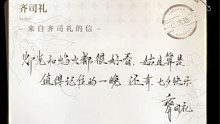 齐司礼
来自齐司礼的信
灯光和焰火都很好看，姑且算是
值得记住的一晚。还有，七夕快乐
齐司礼